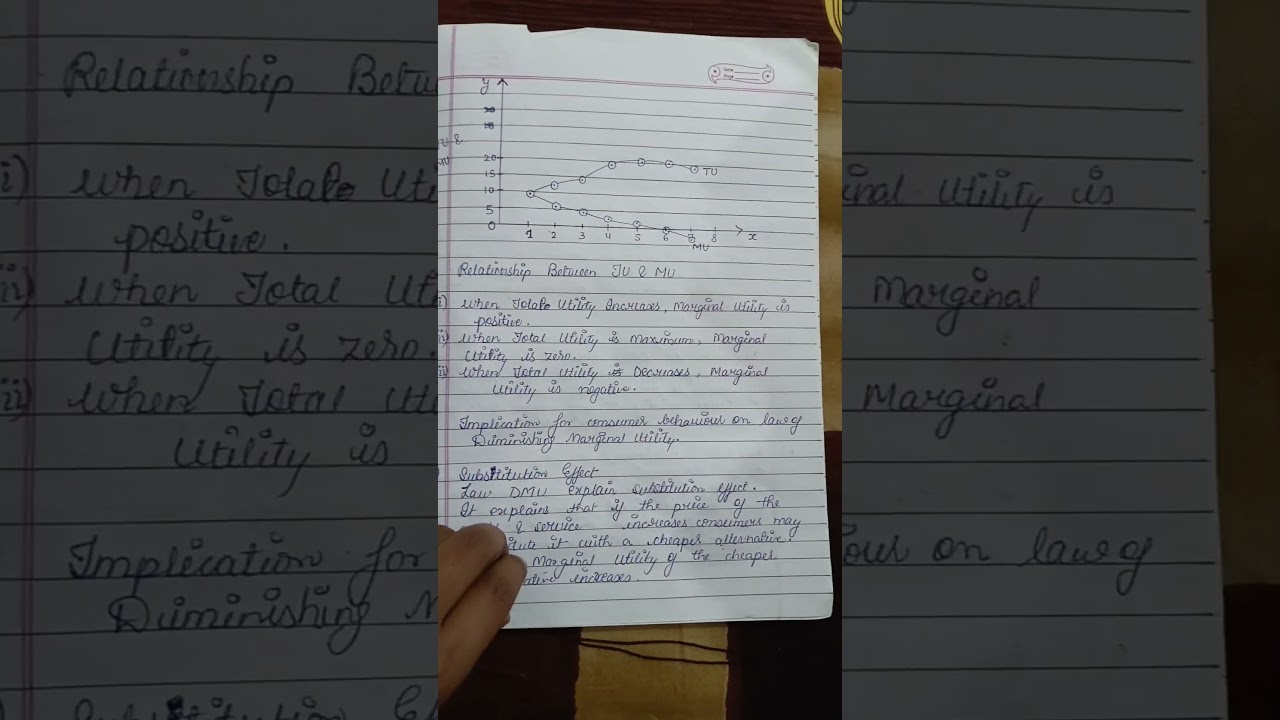 y
20
15
10
5
0
1 2 3 4 5 6 7 8 x
TU
MU
Relationship Between TU & MU
i) When Total Utility Increases, Marginal Utility is
positive.
ii) When Total Utility is Maximum, Marginal
Utility is zero.
When Total Utility is Decreases, Marginal
Utility is negative.
Implication for consumer behaviour on law of
Diminishing Marginal Utility.
Substitution Effect
Law DMU explain substitution effect.
It explains that if the price of the
& service increases consumers may
it with a cheaper alternative.
Marginal Utility of the cheaper
increases.